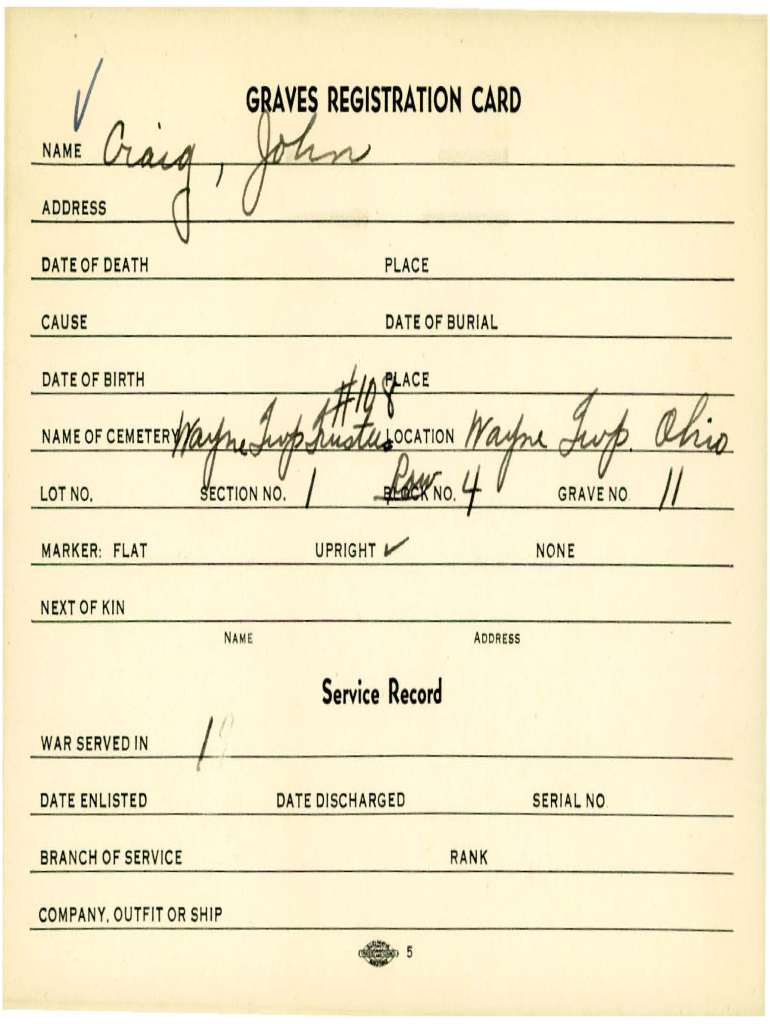 GRAVES REGISTRATION CARD
NAME Craig, John
ADDRESS
DATE OF DEATH PLACE
CAUSE DATE OF BURIAL
DATE OF BIRTH PLACE
#108
NAME OF CEMETERY Wayne Twp Trustees LOCATION Wayne Twp. Ohio
LOT NO. SECTION NO. 1 Row BLOCK NO. 4 GRAVE NO 11
MARKER: FLAT UPRIGHT ✓ NONE
NEXT OF KIN
NAME ADDRESS
Service Record
WAR SERVED IN 1
DATE ENLISTED DATE DISCHARGED SERIAL NO.
BRANCH OF SERVICE RANK
COMPANY, OUTFIT OR SHIP
5